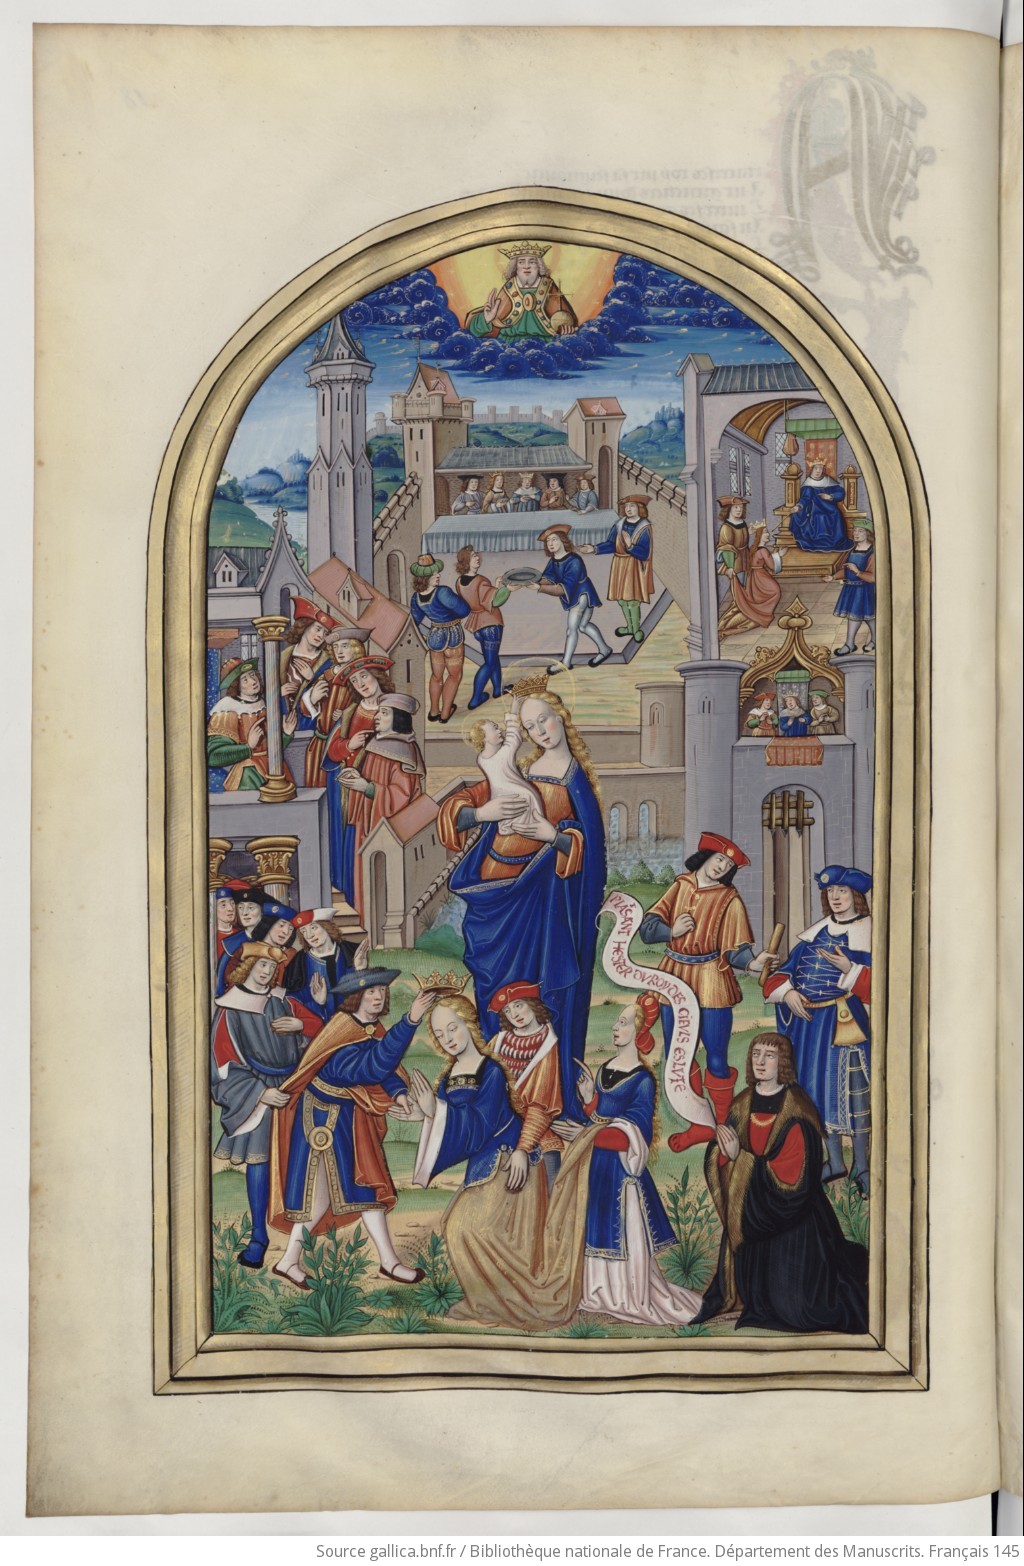 PLAISANT HESTER DV ROY DES CIEVLS ESLVTE
Source gallica.bnf.fr / Bibliothèque nationale de France. Département des Manuscrits. Français 145